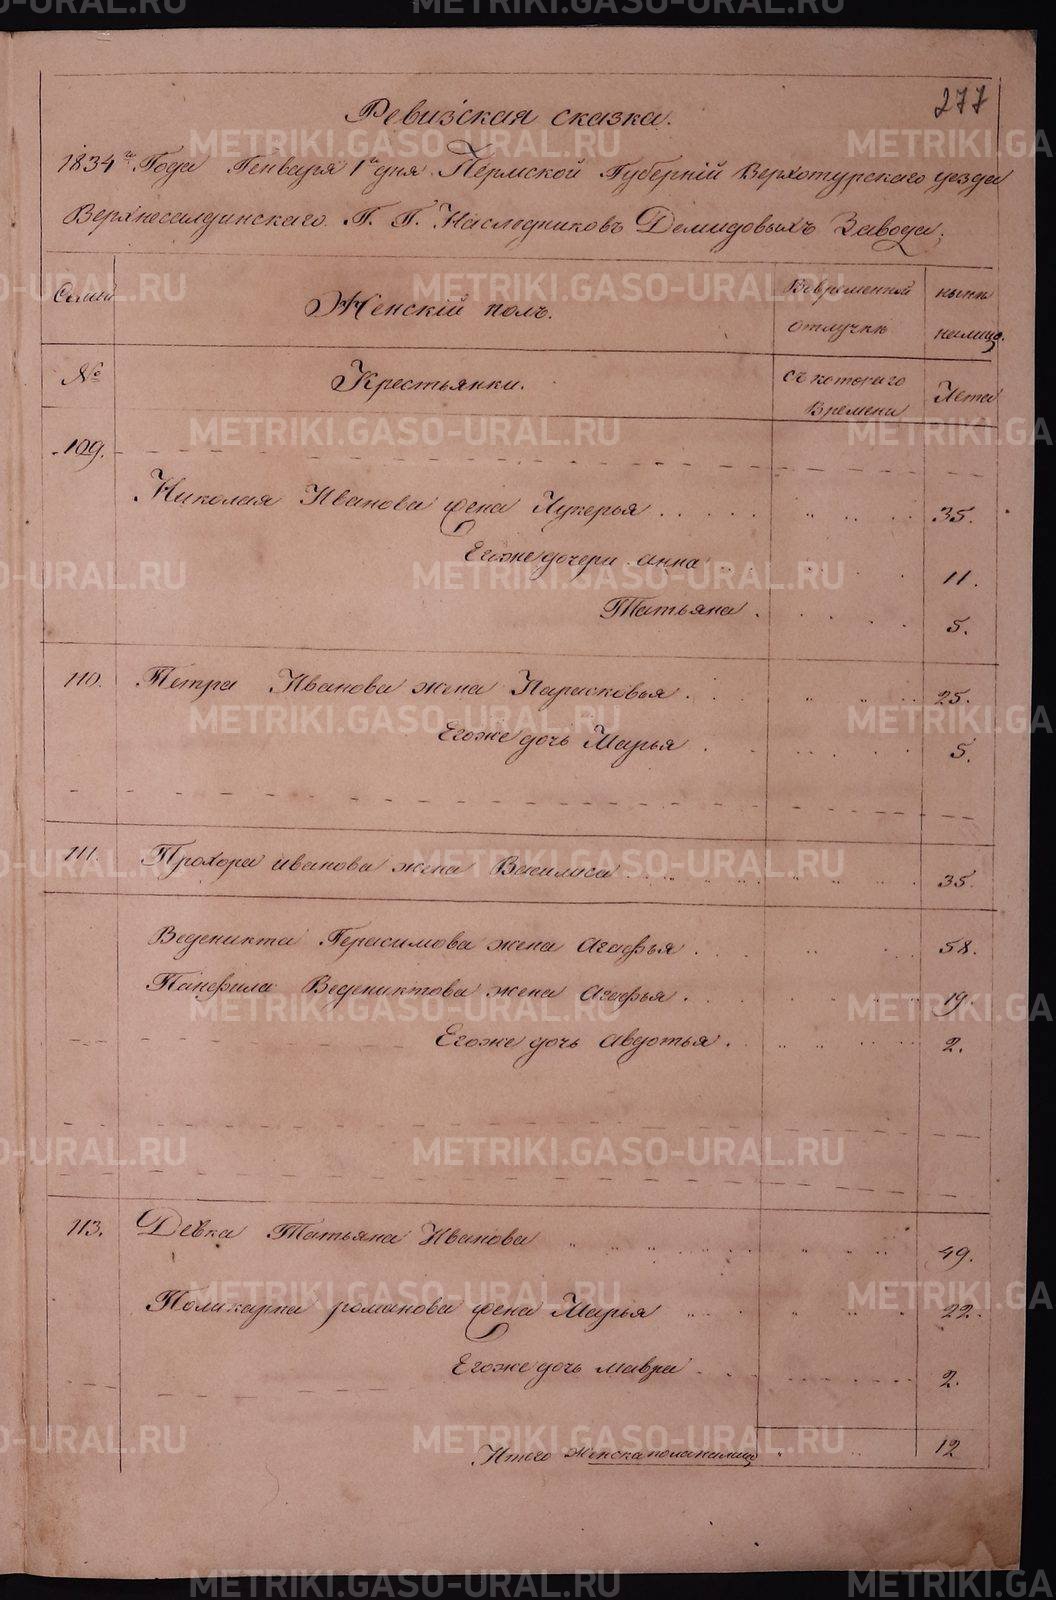 277
Ревизская сказка.
1834го Года Генваря 1го дня Пермской Губерніи Верхотурскаго уезда
Верхнесалдинскаго Г. Г. Наследниковъ Демидовыхъ Завода;
Семьи
Женскій полъ.
Вовременной
отлучкѣ
ныне
налицо.
№
Крестьянки.
съ котораго
Времени
Лета
109.
Николая Иванова жена Лукерья 35.
Егоже дочери анна 11.
Татьяна 5.
110. Петра Иванова жена Парасковья 25.
Егоже дочь Марья 5.
111. Прохора иванова жена Василиса 35.
Веденикта Герасимова жена Агафья 58.
Панфила Ведениктова жена Агафья 19.
Егоже дочь Авдотья 2.
113. Девка Татьяна Иванова 49.
Поликарпа романова жена Марья 22.
Егоже дочь мавра 2.
Итого женска пола налицо 12
METRIKI.GASO-URAL.RU